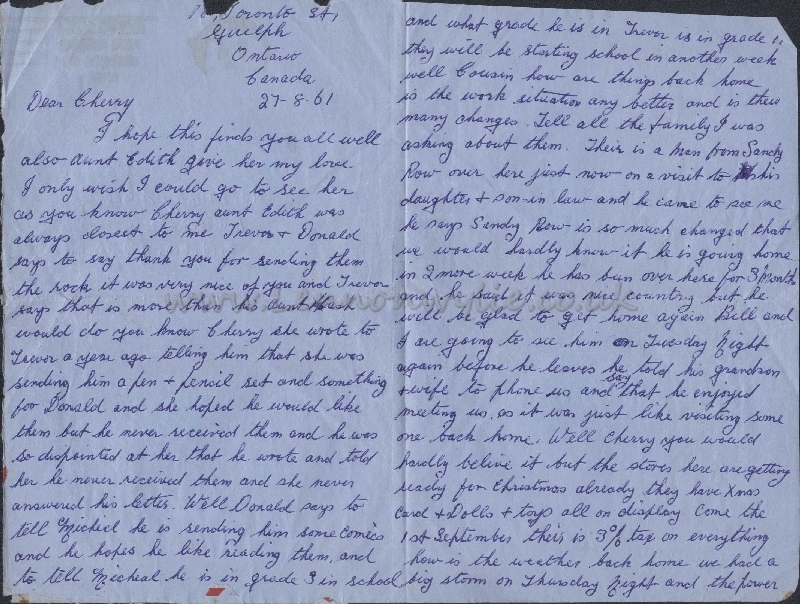 Toronto St,
Guelph
Ontario
Canada
27-8-61
Dear Cherry
I hope this finds you all well
also aunt Edith give her my love
I only wish I could go to see her
as you know Cherry aunt Edith was
always closest to me Trevor + Donald
says to say thank you for sending them
the rock it was very nice of you and Trevor
says that is more than his aunt
would do you know Cherry she wrote to
Trevor a year ago telling him that she was
sending him a pen + pencil set and something
for Donald and she hoped he would like
them but he never received them and he was
so dispointed at her that he wrote and told
her he never received them and she never
answered his letter. Well Donald says to
tell Micheal he is sending him some comics
and he hopes he like reading them, and
to tell Micheal he is in grade 3 in school
and what grade he is in Trevor is in grade 1,
they will be starting school in another week
well Cousin how are things back home
is the work situation any better and is there
many changes. Tell all the family I was
asking about them. Their is a man from Sandy
Row over here just now on a visit to his
daughter + son-in law and he came to see me
he says Sandy Row is so much changed that
we would hardly know it he is going home
in 2 more week he has bun over here for 3 months
and he said it was nice country but he
will be glad to get home again Bill and
I are going to see him on Tuesday Night
again before he leaves he told his grandson
+ wife to phone us and say that he enjoyed
meeting us, as it was just like visiting some
one back home. Well Cherry you would
hardly belive it but the stores here are getting
ready for Christmas already they have Xmas
Card + Dolls + toys all on display Come the
1st September their is 3% tax on everything
how is the weather back home we had a
big storm on Thursday Night and the power